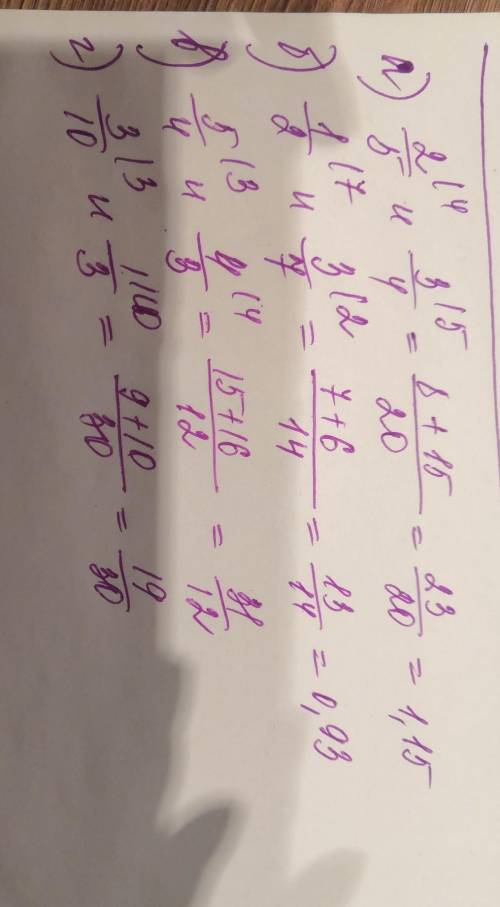 а) 2/5 \4 и 3/4 \5 = 8+15/20 = 23/20 = 1,15
б) 1/2 \7 и 3/7 \2 = 7+6/14 = 13/14 = 0,93
в) 5/4 \3 и 4/3 \4 = 15+16/12 = 31/12
г) 3/10 \3 и 1/3 \10 = 9+10/30 = 19/30